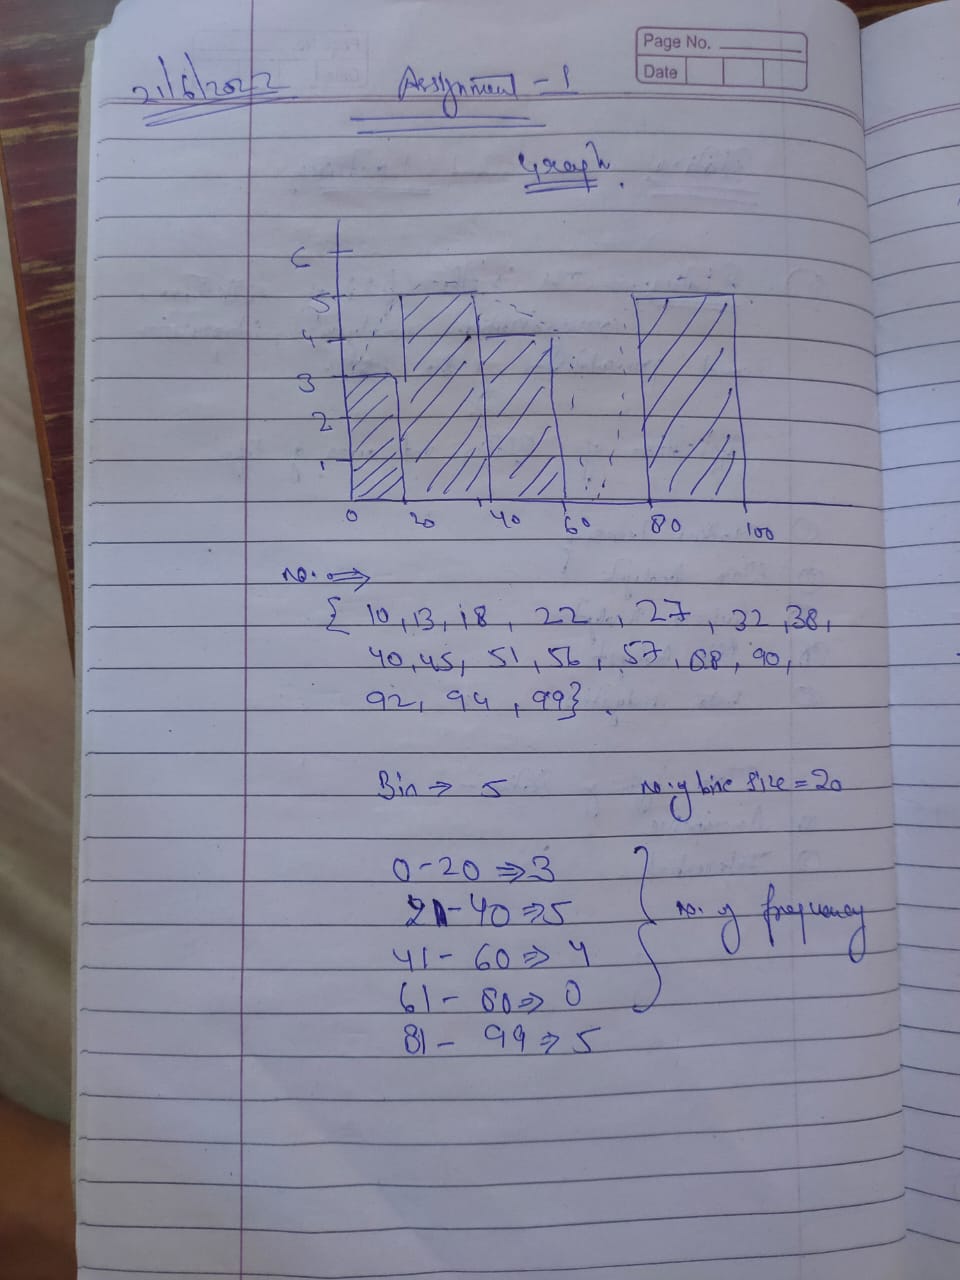 Page No.
Date
21/6/2022
Assignment - 1
Graph.
6
5
4
3
2
1
0 20 40 60 80 100
no. ⇒
{ 10, 13, 18, 22, 27, 32, 38,
40, 45, 51, 56, 57, 88, 90,
92, 94, 99}.
Bin ⇒ 5 no. of bin size = 20
0 - 20 ⇒ 3
21 - 40 ⇒ 5
41 - 60 ⇒ 4
61 - 80 ⇒ 0
81 - 99 ⇒ 5
no. of frequency